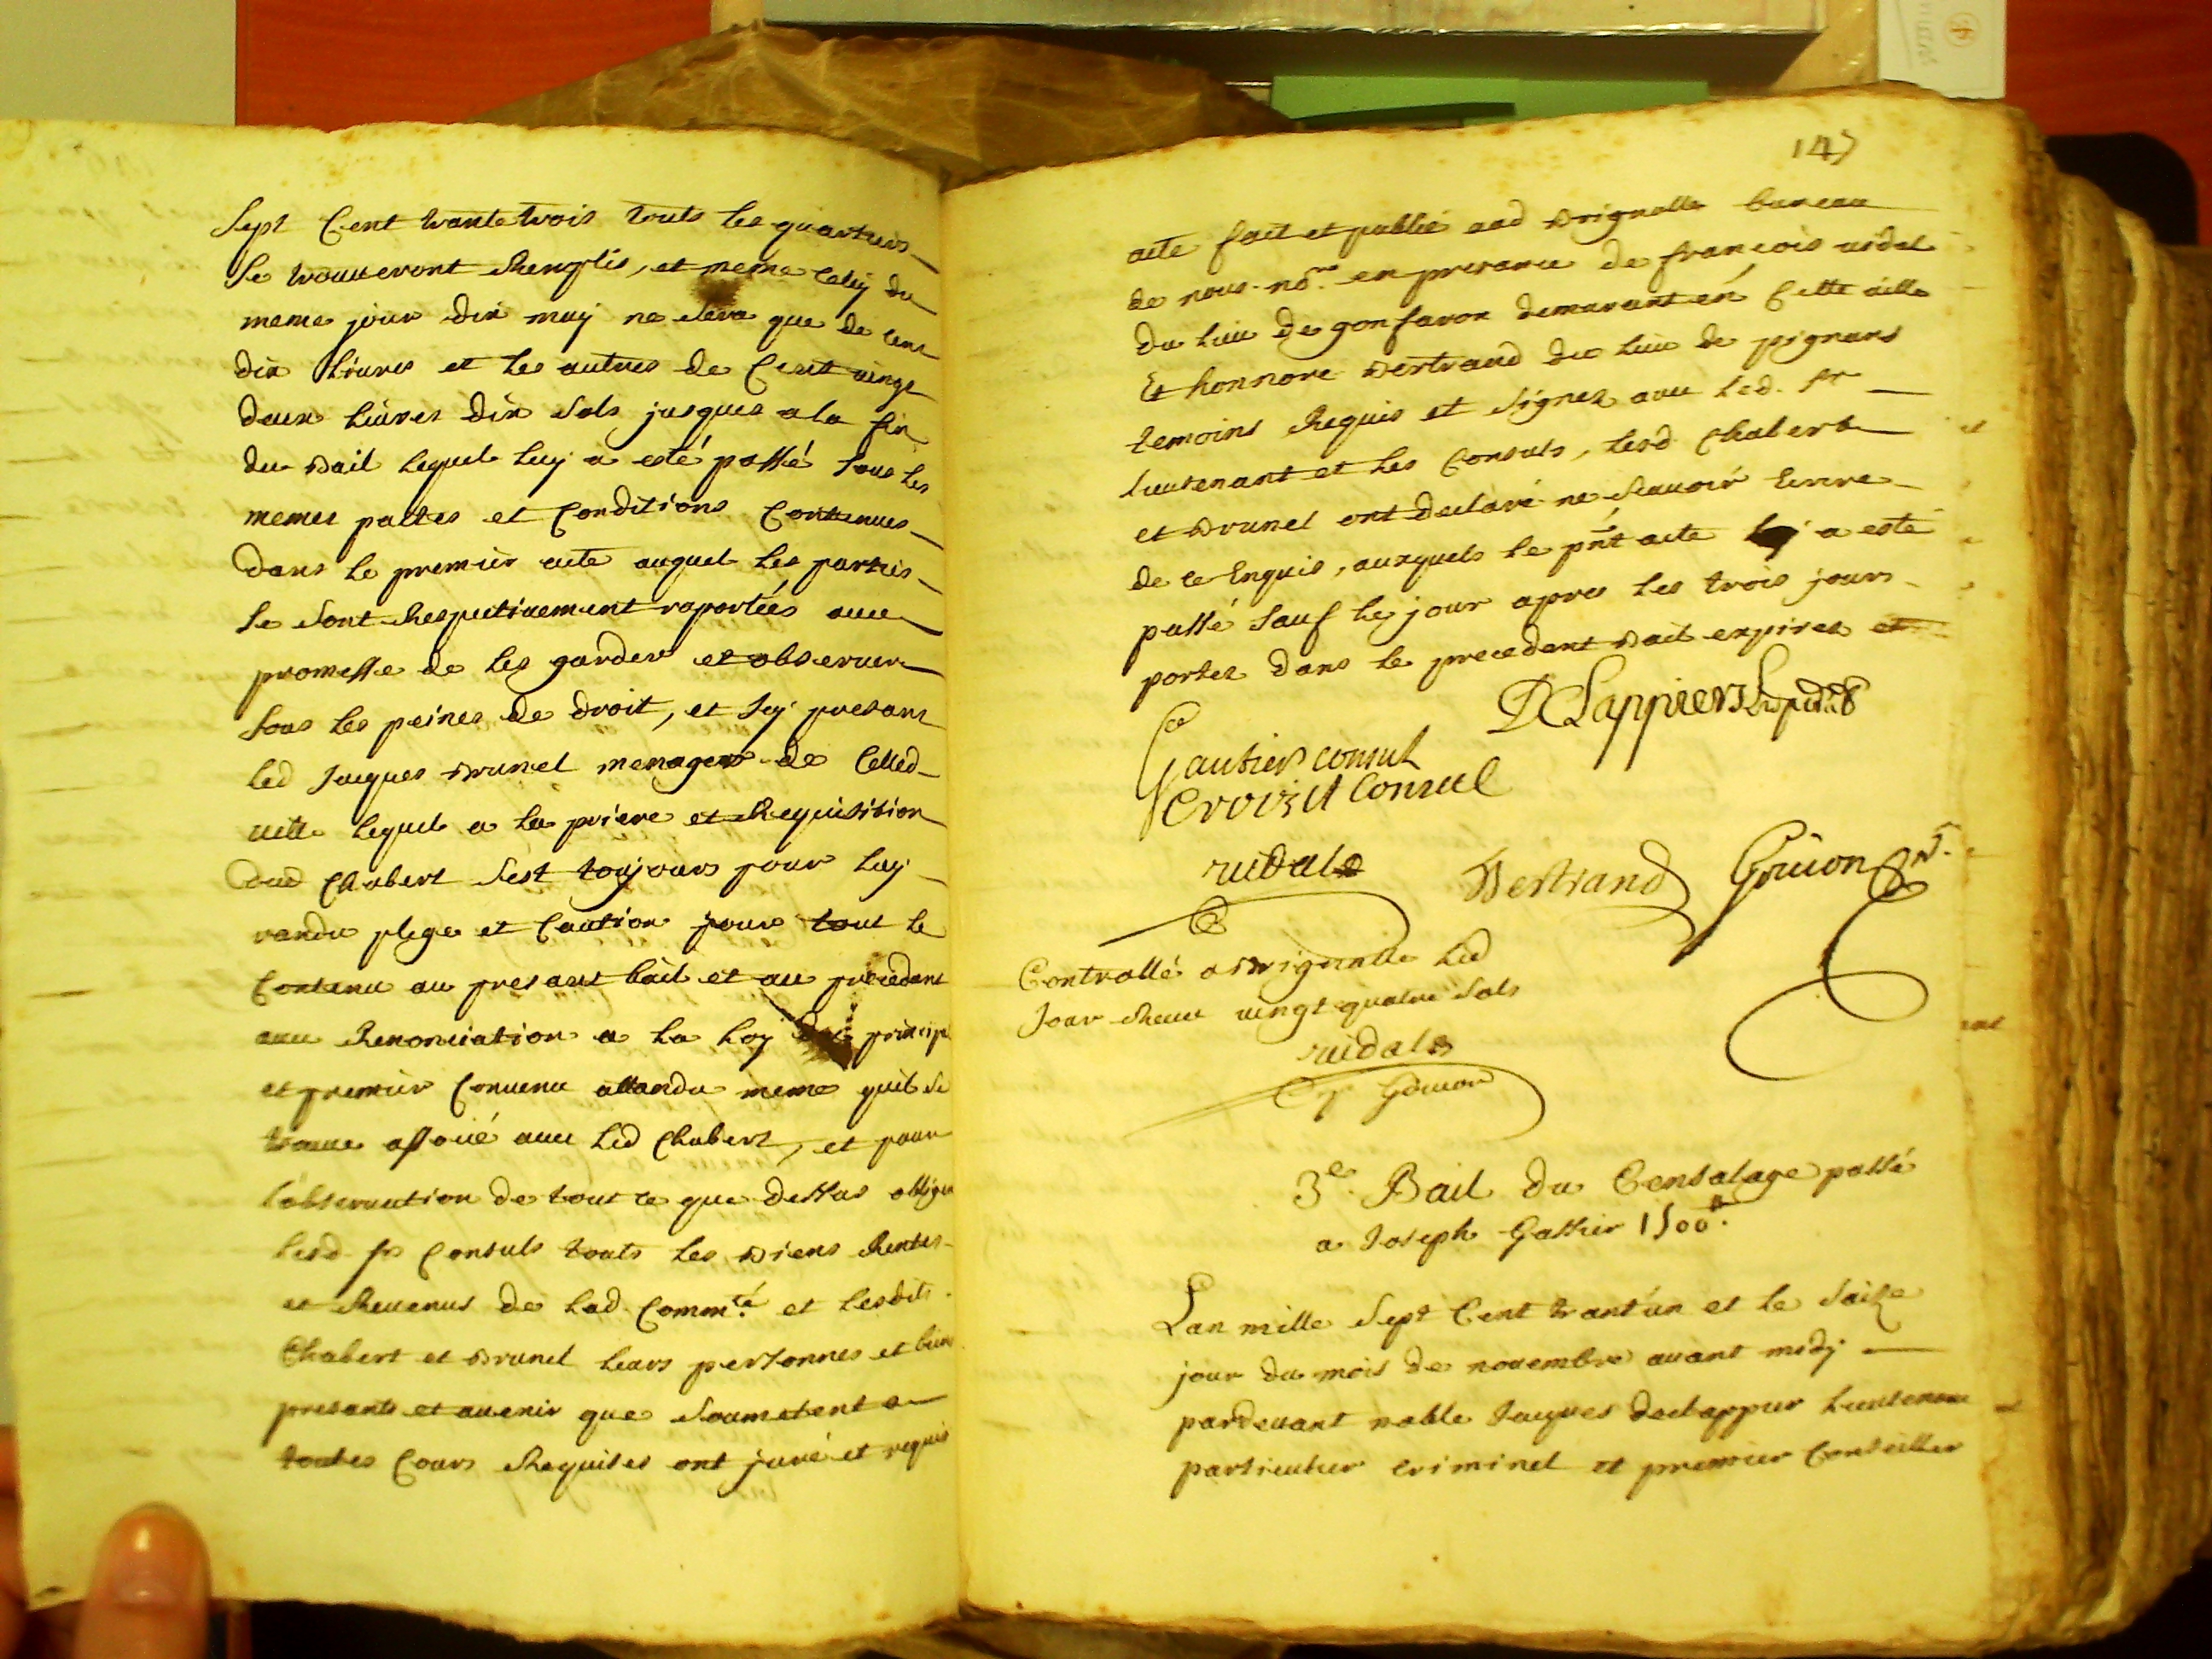 Sept Cent trante trois touts les quartiers
se trouueront Remplis, et meme celuy du
meme jour dix may ne sera que de cent
dix liures et les autres de Cent vingt
deux liures dix sols jusques a la fin
du Bail lequel luy a esté passé sous les
memes pactes et Conditions Contenues
dans le premier acte auquel les parties
se sont Respectiuement raportées auec
promesse de les garder et obseruer
sous les peines de droit, et sy presant
led Jacques Brunel menager de Cetted
uille lequel a la priere et Requisition
dud Chabert s'est toujours pour luy
randu plege et Caution pour tout le
Contenu au presant bail et au precedant
auec Renonciation a la loy du princip
et premier Conuenu attandu meme quil se
trouue assoçié auec led Chabert, et pour
l'obseruation de tout ce que dessus obligent
lesd srs Consuls touts les Biens Rentes
et Reuenus de lad. Commté. et lesdits
Chabert et Brunel leurs personnes et biens
presants et auenir que soumetent a
toutes Cours Requises ont juré et requis
147
acte fait et publié aud Brignolle bureau
de nous nore. en presance de françois
du lieu de gonfaron demurant en Cette uille
Et honnore Bertrand du lieu de pignans
temoins Requis et signez auec led. sr
lieutenant et les Consuls, lesd Chabert
et Brunel ont declaré ne scauoir Ecrire
de ce Enquis, auxquels le pñt acte a esté
passé sauf le jour apres les trois jours
portez dans le precedent Bail expirez et
DClappiers
Gautier consul
consul
Bertrand Goujon
Controllé a Brignolle led
Jour Receu uingt quatre sols
Goujon
3e. Bail du Censalage passé
a Joseph Gassier 1500#.
Lan mille sept Cent trant'un et le saize
jour du mois de nouembre auant midj
pardeuant noble Jacques declappier lieutenant
particulier criminel et premier Conseiller